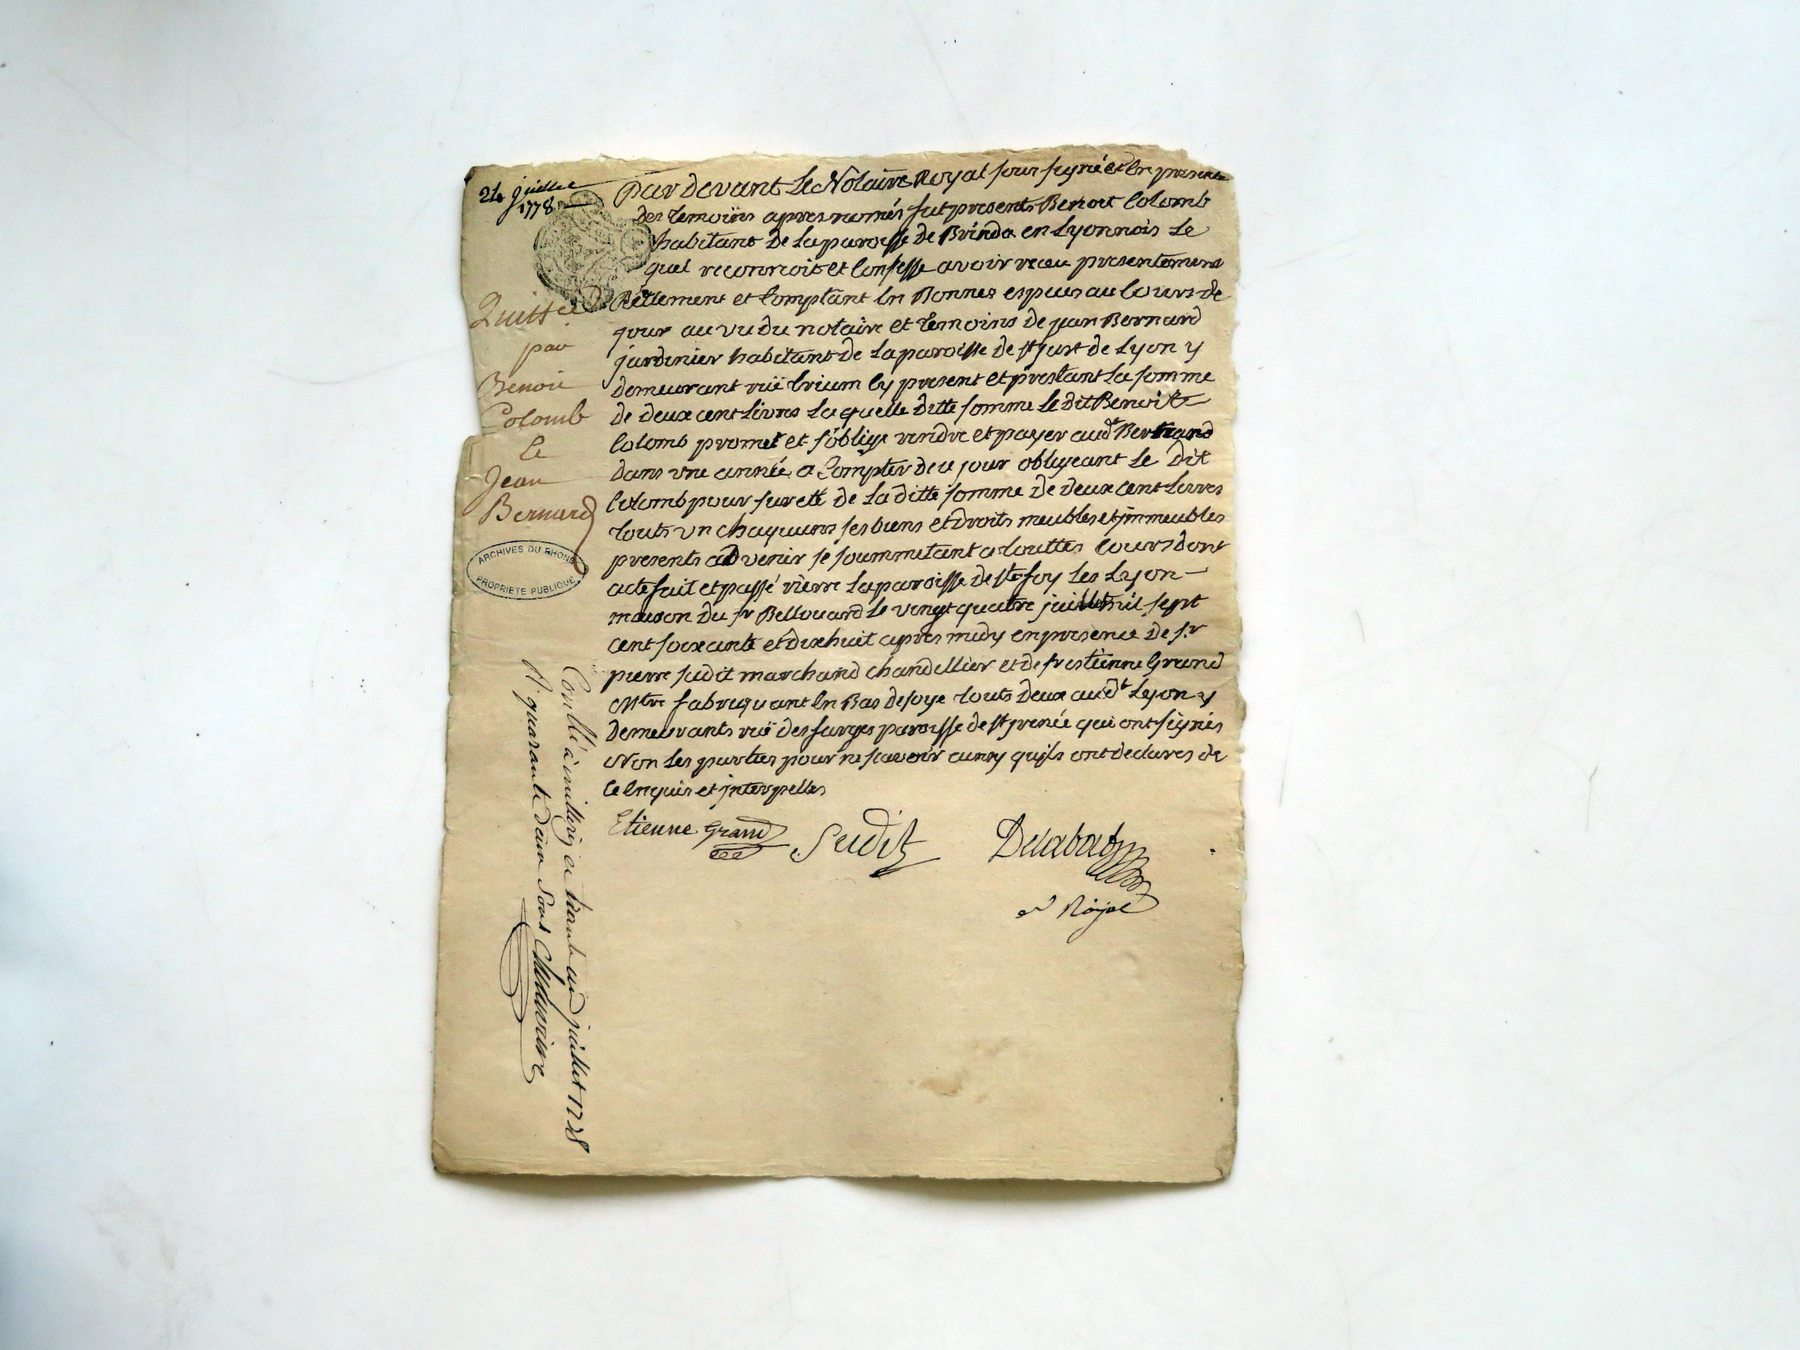 24 juillet
1778
par devant le Notaire Royal sous signé et en presence
des temoins apres només fut present Benoit Colomb
habitant de la paroisse de Brinda en Lyonnois le
quel reconnoit et Confesse avoir receu presentement
Réellement et Comptant En Bonnes espces au Cours de
jour au vu du notaire et temoins de jean Bernard
jardinier habitant de la paroisse de st just de Lyon y
demeurant rüe trium Cy present et prestant La somme
de deux cent Livres Laquelle ditte somme Le dit Benoit
Colomb promet et s'oblige rendre et payer audt Bernard
dans une année a Compter de ce jour obligeant Le dit
Colomb pour sureté de La ditte somme de deux cent Livres
touts un chaquuns ses biens et droits meubles et jmmeubles
presents ad venir se soummetant a touttes Cours dont
acte fait et passé rierre La paroisse de ste foy Les Lyon
maison du sr Bellouard Le vingt quatre juillet mil sept
cent soixante et dixhuit apres midy en presence de sr
pierre sudit marchand chandellier et de sr estienne Grand
Mtre fabriquant En Bas de soye touts deux audt Lyon y
demeurants rüe des farges paroisse de st jrenée qui ont signés
Non Les parties pour ne scavoir ainsy quils ont declarés de
Ce Enquis et jnterpellés
Etienne Grand Sudit Delabat
Nre Royal
Quittce
par
Benoit
Colomb
Le
Jean
Bernard
ARCHIVES DU RHONE
PROPRIETE PUBLIQUE
Conllé à millery ce trante un juillet 1778
R. quarante deux sous